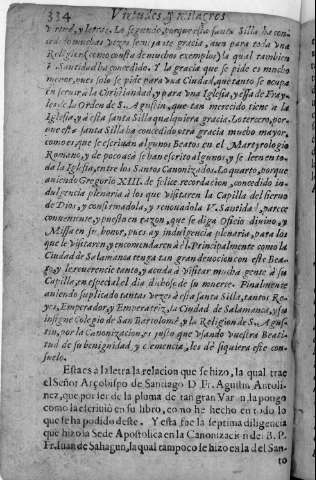 334 Virtudes, y milagros
virtud, y letras. Lo segundo, porque esta santa Silla ha con-
cedido muchas vezes semejante gracia, aun para toda vna
Religion (como consta de muchos exemplos) la qual tambien
V. Santidad ha concedido. Y la gracia que se pide es mucho
menor, pues solo se pide para vna Ciudad, que tanto se ocupa
en seruir a la Christiandad, y para vna Iglesia, y essa de Fray-
les de la Orden de S. Agustin, que tan merecido tiene a la
Iglesia, y a esta santa Silla qualquiera gracia. Lo tercero, por-
que esta santa Silla ha concedido otra gracia mucho mayor,
como es, que se escriuan algunos Beatos en el Martyrologio
Romano, y de poco acà se han escrito algunos, y se leen en to-
da la Iglesia, entre los Santos Canonizados. Lo quarto, porque
auiendo Gregorio XIII. de felice recordacion, concedido in-
dulgencia plenaria à los que visitaren la Capilla del sieruo
de Dios, y confirmadola, y renouadola V. Santidad, parece
conueniente, y puesto en razon, que se diga Oficio diuino, y
Missa en su honor, pues ay indulgencia plenaria, para los
que le visitaren, y encomendaren à el. Principalmente como la
Ciudad de Salamanca tenga tan gran deuocion con este Bea-
to, y le reuerencie tanto, y acuda à visitar mucha gente à su
Capilla, en especial el dia dichoso de su muerte. Finalmente
auiendo suplicado tantas vezes à esta santa Silla, tantos Re-
yes, Emperador, y Emperatriz, la Ciudad de Salamanca, y su
insigne Colegio de San Bartolomè, y la Religion de S. Agus-
tin, por la Canonizacion, es justo que vsando vuestra Beati-
tud de su benignidad, y clemencia, les dè siquiera este con-
suelo.
Esta es a la letra la relacion que se hizo, la qual trae
el Señor Arçobispo de Santiago D. Fr. Agustin Antoli-
nez, que por ser de la pluma de tan gran Varon la pongo
como la escriuiò en su libro, como he hecho en todo lo
que se ha podido deste. Y esta fue la septima diligencia
que hizo la Sede Apostolica en la Canonizacion de B. P.
Fr. Iuan de Sahagun, la qual tampoco se hizo en la del San-
to